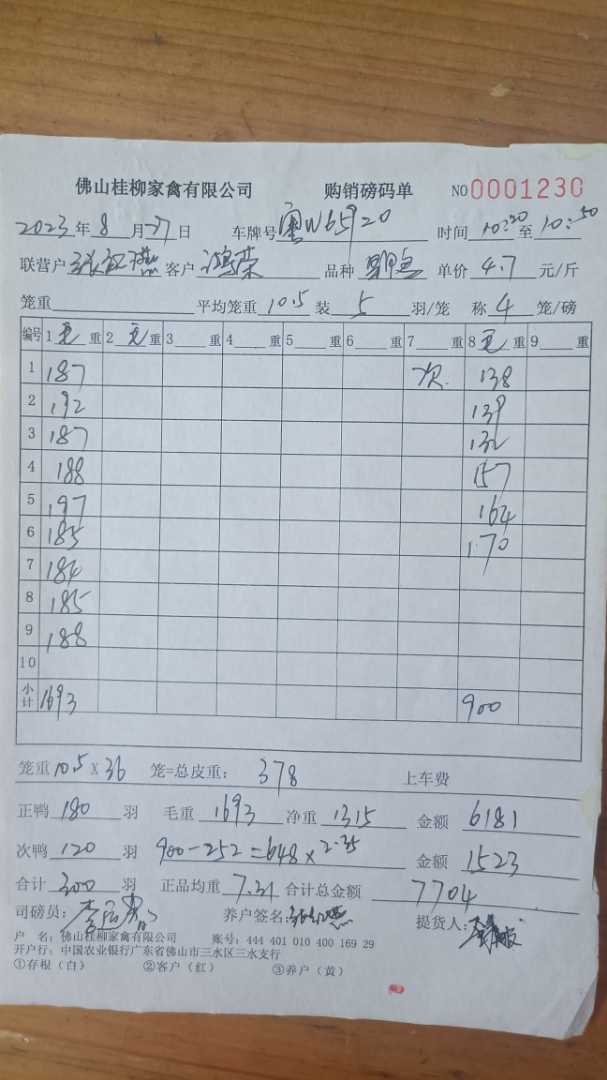 佛山桂柳家禽有限公司 购销磅码单 NO 0001230
2023年8月27日 车牌号 W65920 时间 10:20 至 10:50
联营户 客户 鸿荣 品种 单价 4.7 元/斤
笼重 平均笼重 10.5 装 5 羽/笼 称 4 笼/磅
编号 1 毛 重 2 毛 重 3 重 4 重 5 重 6 重 7 重 8 毛 重 9 重
1 187 次. 138
2 192 139
3 187 132
4 188 157
5 197 164
6 185 170
7 184
8 185
9 188
10
小计 1693 900
笼重 10.5 X 36 笼=总皮重: 378 上车费
正鸭 180 羽 毛重 1693 净重 1315 金额 6181
次鸭 120 羽 900-252=648×2.35 金额 1523
合计 300 羽 正品均重 7.31 合计总金额 7704
司磅员: 养户签名: 提货人:
户 名:佛山桂柳家禽有限公司 账号:444 401 010 400 169 29
开户行:中国农业银行广东省佛山市三水区三水支行
①存根(白) ②客户(红) ③养户(黄)